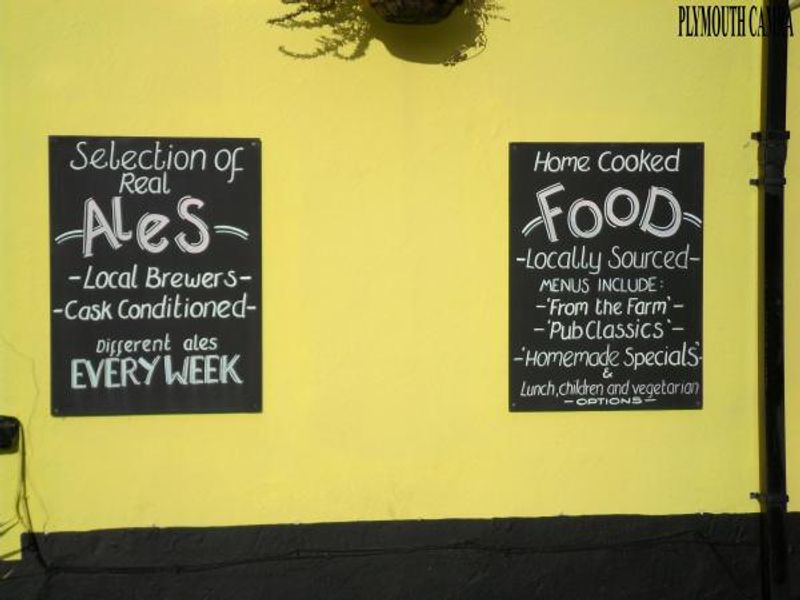 PLYMOUTH CAMRA
Selection of
Real
Ales
-Local Brewers-
-Cask Conditioned-
Different ales
EVERY WEEK
Home Cooked
FOOD
-Locally Sourced-
MENUS INCLUDE:
-'From the Farm'-
-'Pub Classics'-
-'Homemade Specials'-
&
Lunch, children and vegetarian
-OPTIONS-